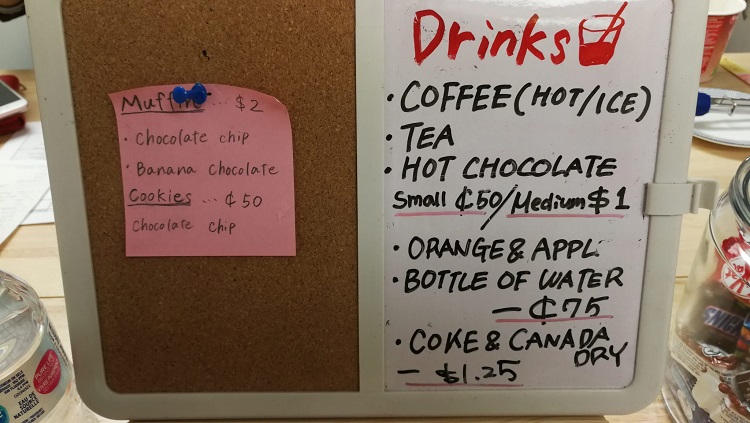 Muffin ... $2
· Chocolate chip
· Banana chocolate
Cookies ... ₵50
Chocolate chip
Drinks
· COFFEE (HOT/ICE)
· TEA
· HOT CHOCOLATE
Small ₵50/Medium $1
· ORANGE & APPL
· BOTTLE OF WATER
— ₵75
· COKE & CANADA
DRY
— $1.25
PURE LIFE
EAU DE
SOURCE
NATURELLE